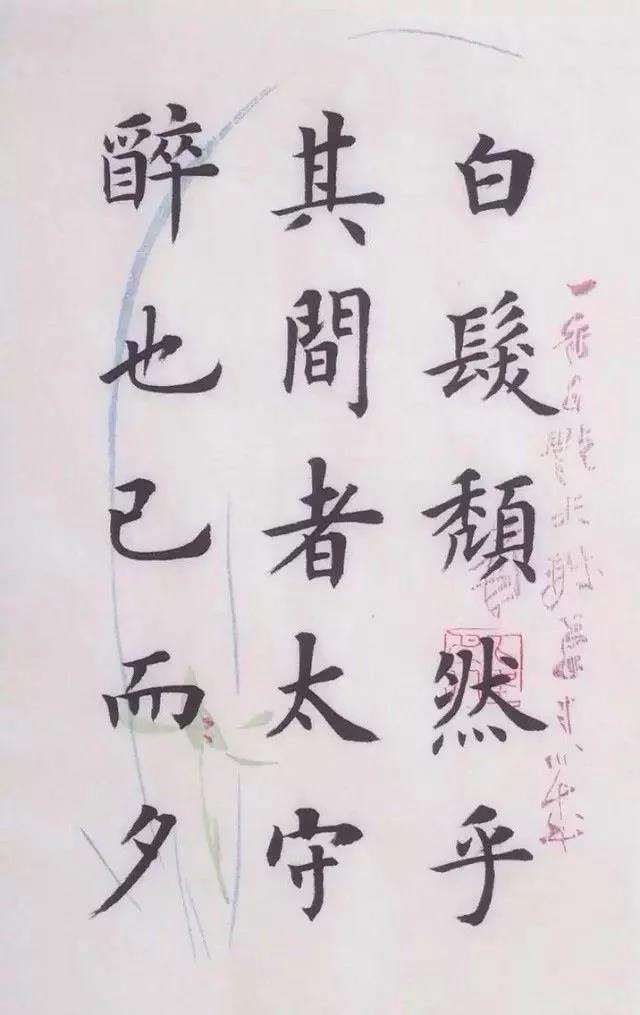 白髮頹然乎
其間者太守
醉也已而夕